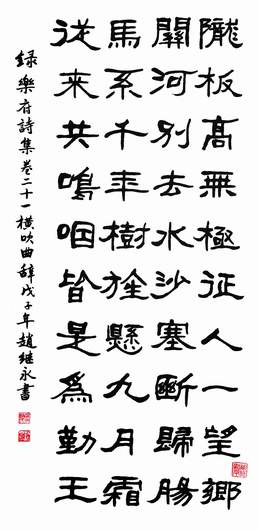 隴板高無極征人一望鄉
關河別去水沙塞斷歸腸
馬系千年樹旌懸九月霜
從來共嗚咽皆是為勤王
録樂府詩集卷二十一橫吹曲辭戊子年趙继永書